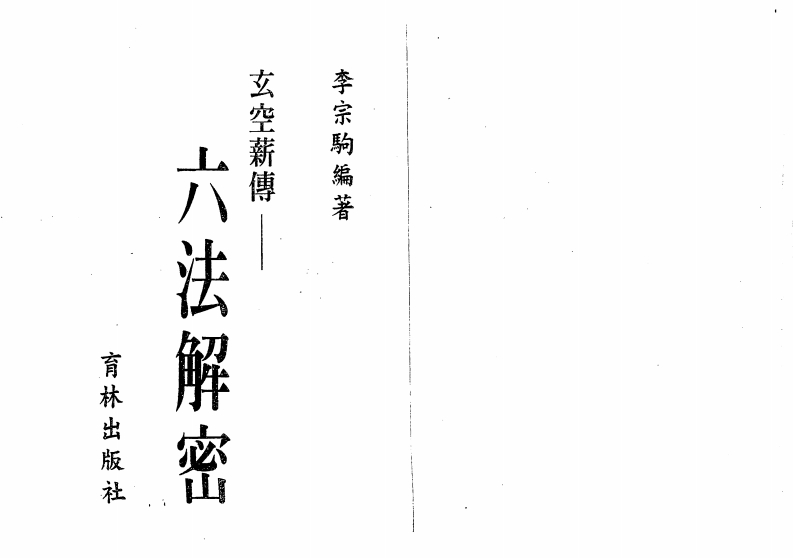 李宗駒編著
玄空薪傳——
六法解密
育林出版社